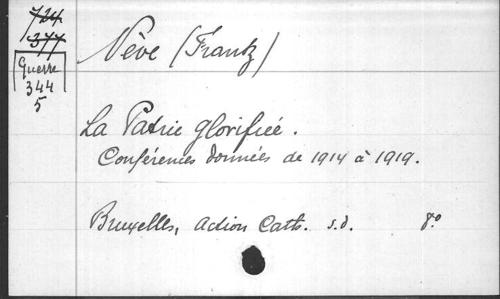 724
377
Guerre
344
5
Nève (Frantz)
La Patrie glorifiée.
Conférences données de 1914 à 1919.
Bruxelles, Action Cath. s.d. 8º